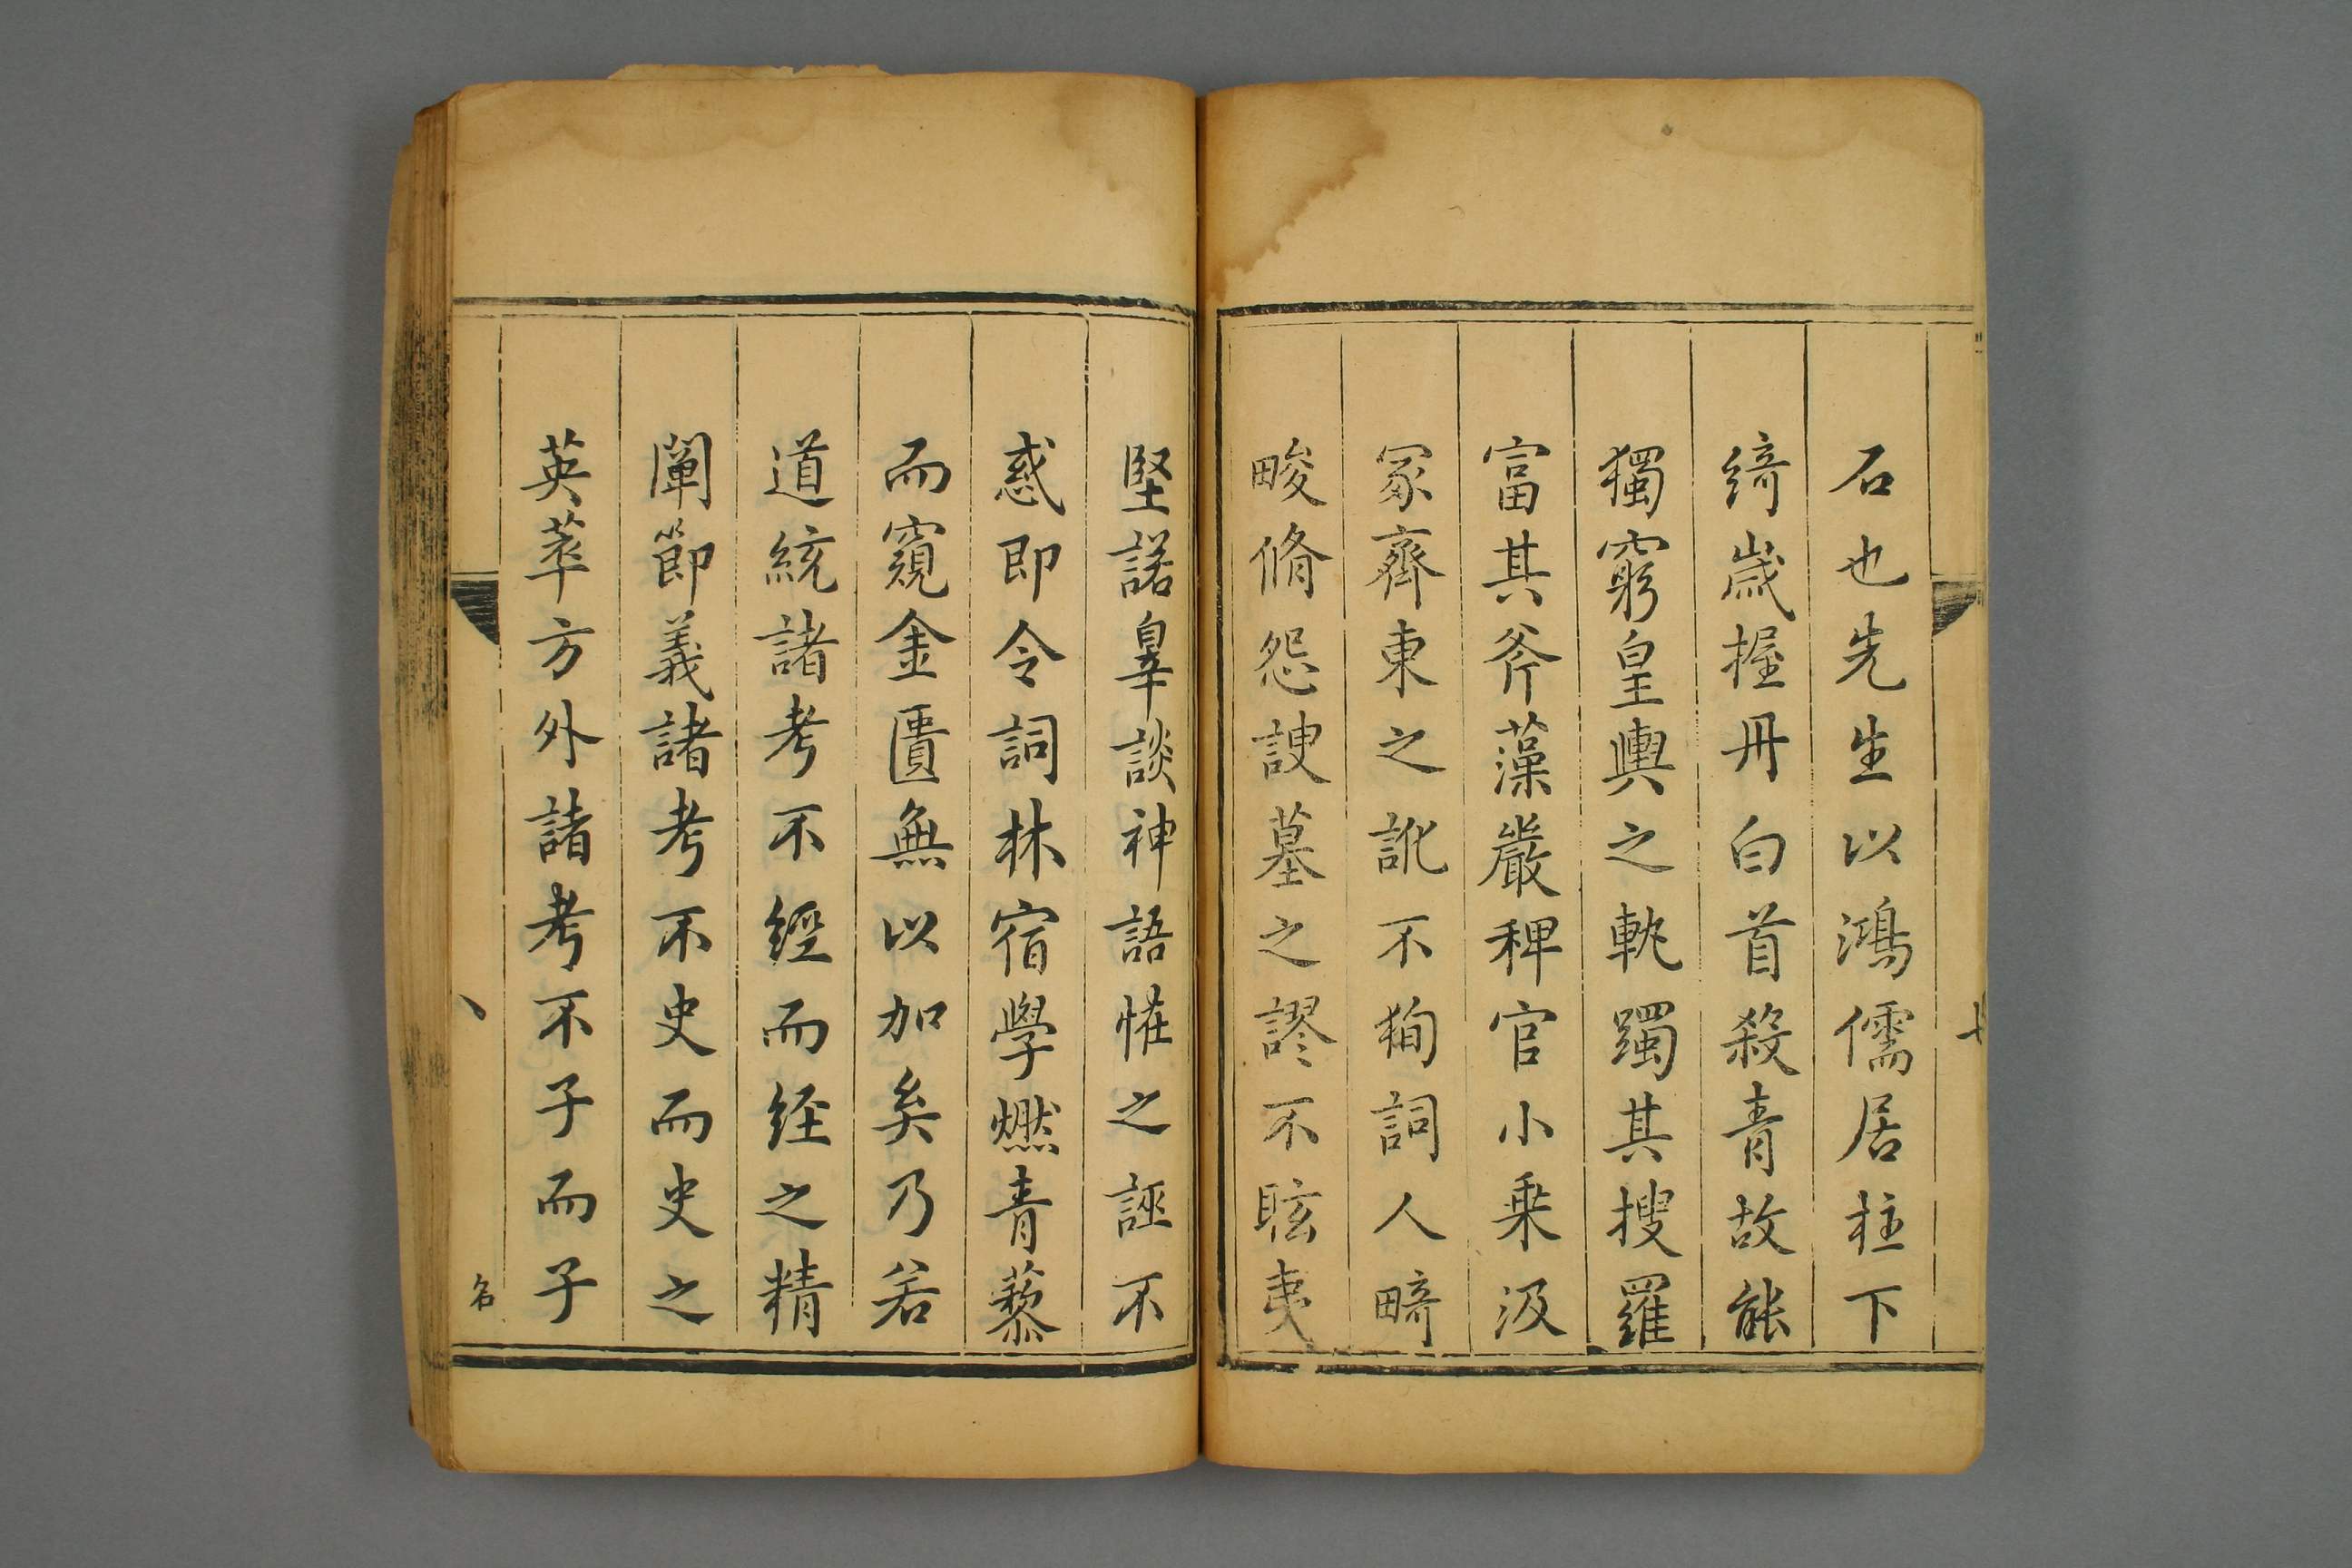 石也先生以鴻儒居柱下
綺歲握丹白首殺青故能
獨窮皇輿之軌躅其搜羅
富其斧藻嚴稗官小乘汲
冢齊東之訛不狥詞人畸
畯脩怨諛墓之謬不眩夷
堅諾皋談神語恠之誣不
惑即令詞林宿學燃青藜
而窺金匱無以加矣乃若
道統諸考不經而經之精
闡節義諸考不史而史之
英萃方外諸考不子而子